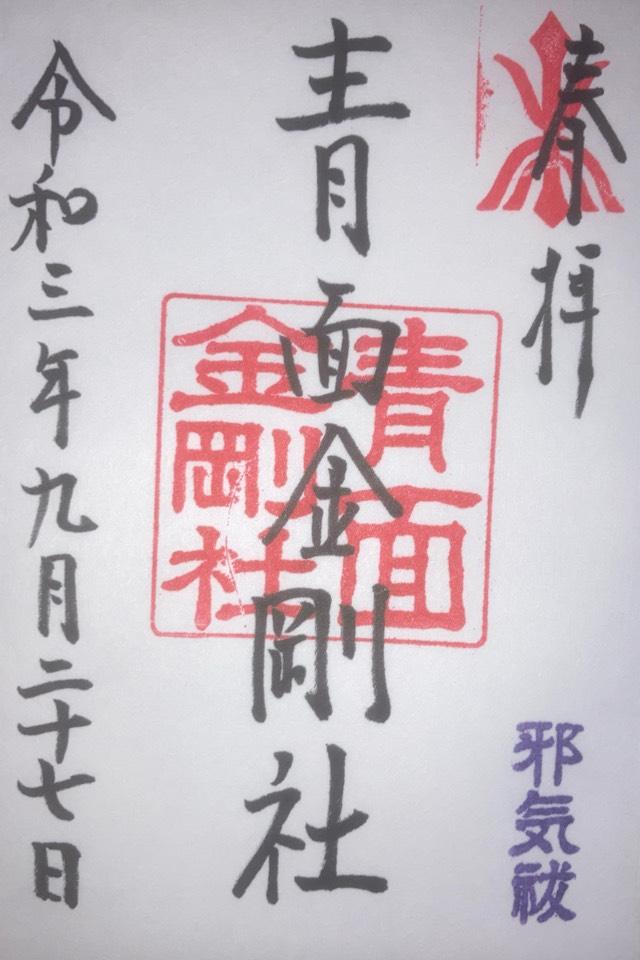 奉拝
邪気祓
青面金剛社
青面
金剛社
令和三年九月二十七日